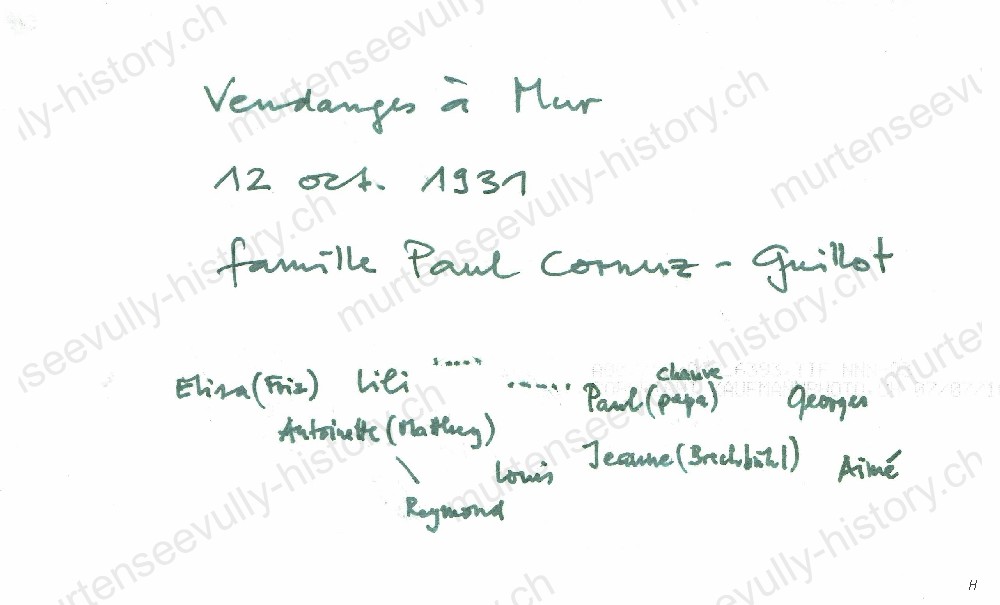 Vendanges à Mur
12 oct. 1931
famille Paul Cornuz - Guillot
.....
chauve
Elisa (Friz) Lili ..... Paul (papa) Georges
Antoinette (Mathey) Jeanne (Brechbühl)
Louis Aimé
Raymond
H
murtenseevully-history.ch